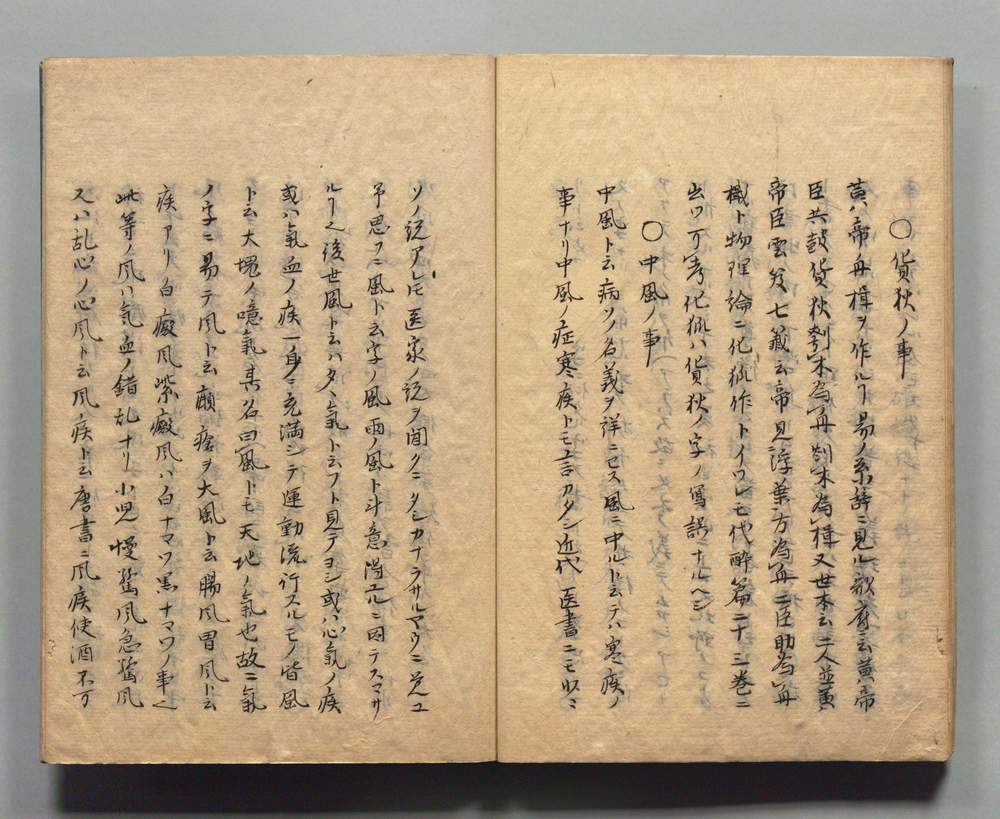 〇貨狄ノ事
黄ハ帝舟楫ヲ作ルヿ易ノ系辞ニ見ル 云黄帝
臣共鼓貨狄刳木為舟剡木為楫又世本云二人並黄
帝臣雲笈七籤云帝見浮葉方為舟二臣助為舟
檝ト物理論ニ化狐作トイヘレモ代酔篇二十三巻ニ
出ツ可考化狐ハ貨狄ノ字ノ寫誤ナルヘシ
〇中風ノ事
中風ト云病ソノ名義ヲ詳ニセス風ニ中ルト云テハ寒疾ノ
事ナリ中風ノ症寒疾トモ言カタシ近代医書ニモ以ミ
ソノ説アレㇳモ医家ノ説ヲ聞クニタシカナラサルヤウニ覚ユ
予思フニ風ト云字ノ風雨ノ風ト斗意得ユルニ因テスマサ
ルヿ也後世風ト云ハタヽ氣ト云フト見テヨシ或ハ心氣ノ疾
或ハ氣血ノ疾一身ニ充満シテ運動流行スルモノ皆風
ト云大塊ノ噫氣其名曰風トモ天地ノ氣也故ニ氣
ノ字ニ易テ風ト云 瘡ヲ大風ト云腸風胃風ト云
疾アリ白癜風紫癜風ハ白ナマツ黒ナマツノ事也
此等ノ風ハ気血ノ錯乱ナリ小児慢驚風急驚風
又ハ乱心ノ心風ト云風疾ト云唐書ニ風疾使酒不可